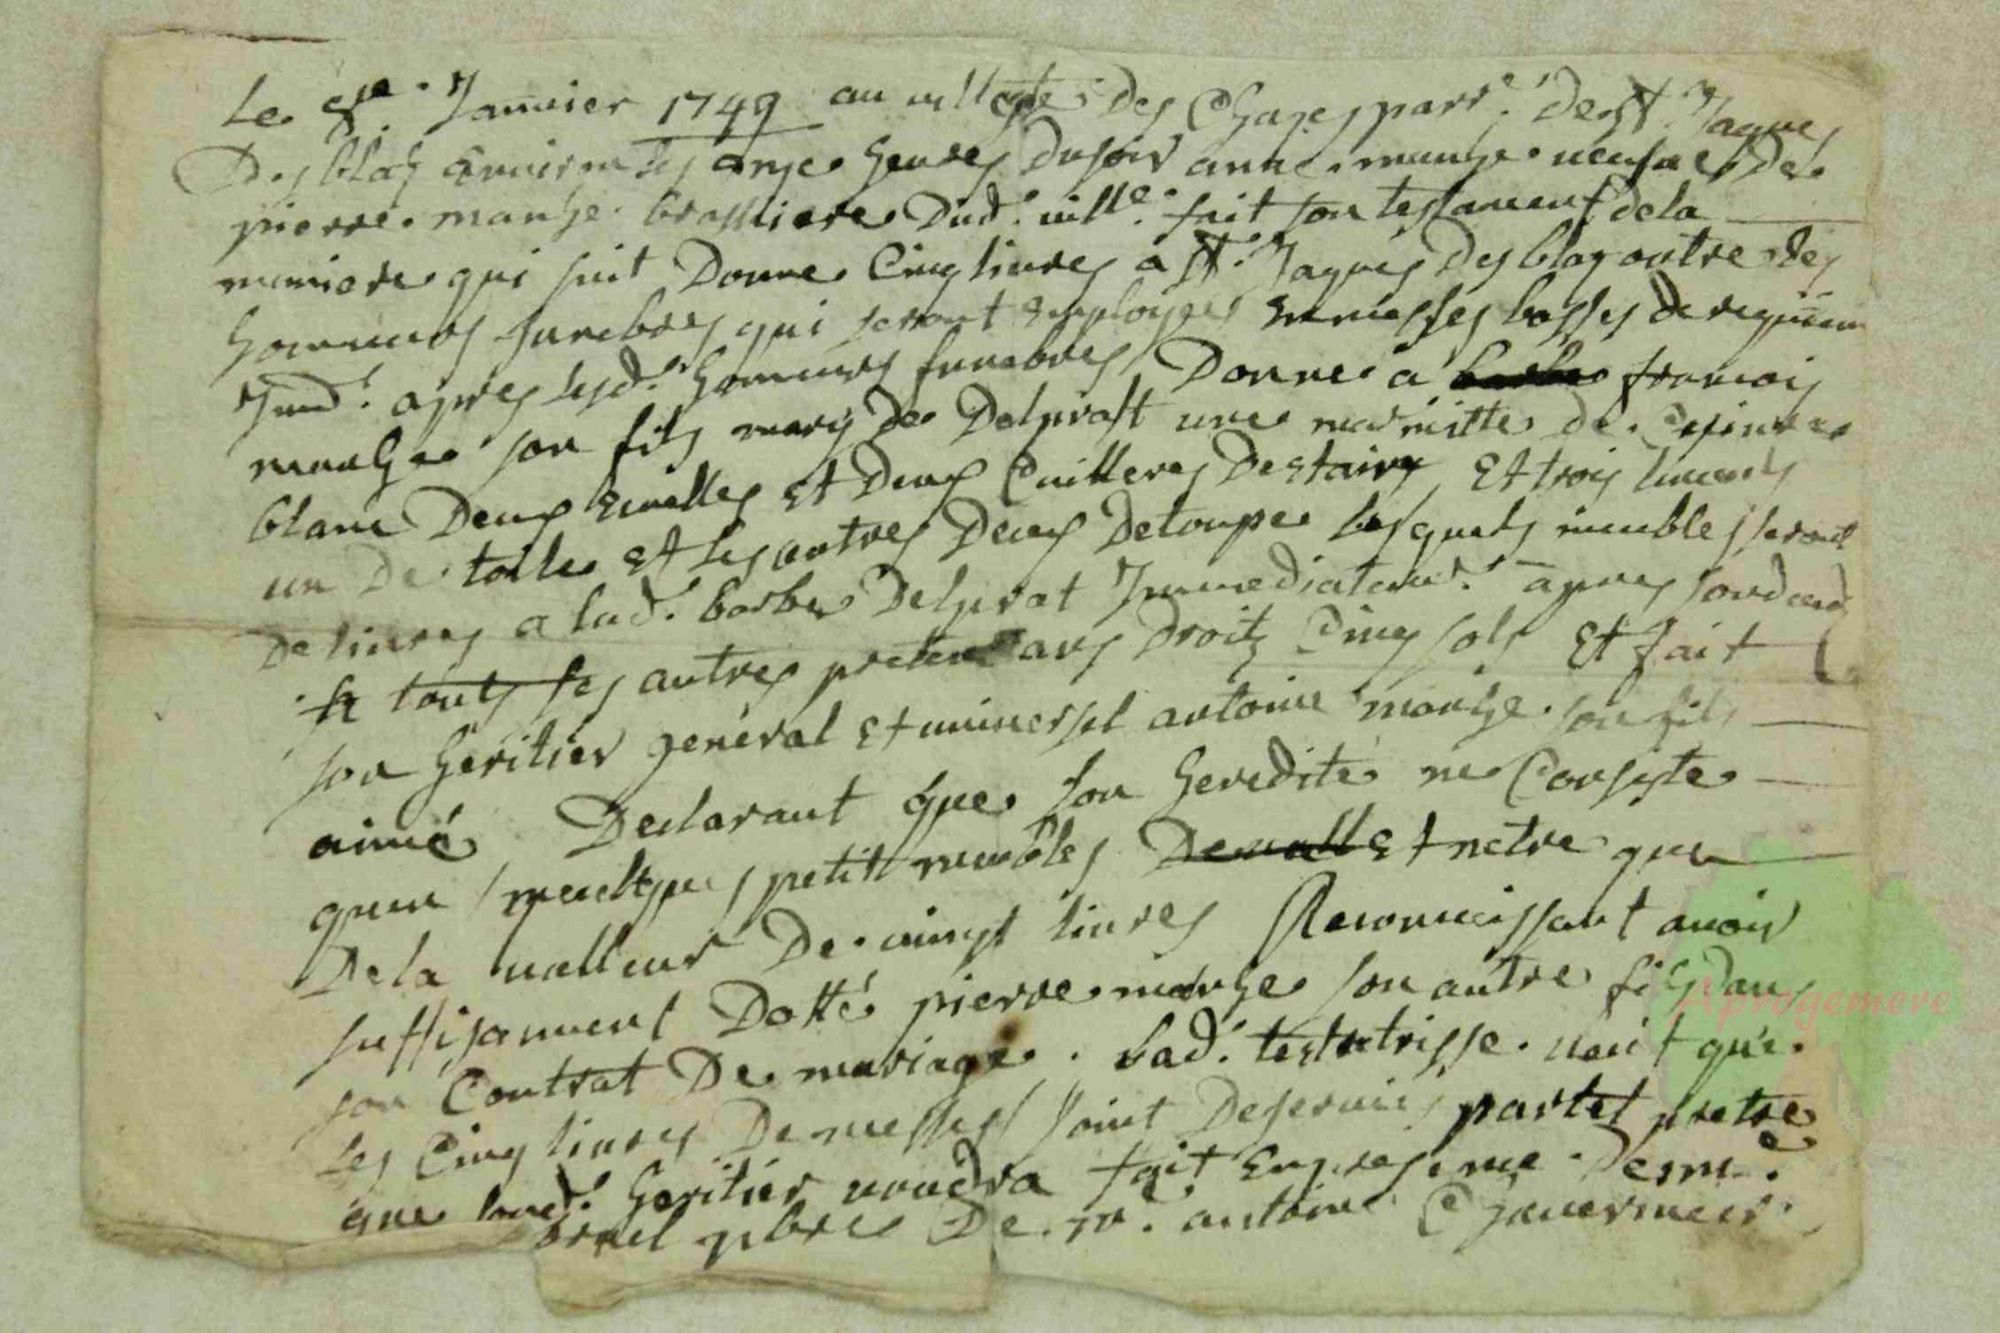 Le 8re. Janvier 1749 au village des Chazes parr.e de St Jaques
Des blatz Environ les onze heures du soir anne manhe veusve De
pierre manhe brassiere Dud. ville. fait son testament de la
maniere qui suit Donne Cinq livres a St. Jaques Des blaz outre les
honneurs funebres qui seront Employees En messes basses de requiem
Imd.t apres lesd. honneurs funebres, Donne a francois
manhe son fils mary de Delprast une marmitte de
blanc Deux Ecuelles Et Deux Cuilleres Destaing Et trois linceuls
un De toille Et les autres Deux Detoupe lesquels meubles seront
Delivres a lad. barbe Delprat Immediatem.t apres son deces
Et touts ses autres pretendans Droitz Cinq sols Et fait
son heritier general Et universel antoine manhe son fils
aimé Declarant que son heredité ne Consiste
quen quelques petits meubles Et netre que
De la valleur De vingt livres Reconnoissant avoir
suffisanment Dotté pierre manhe son autre fils dans
son Contrat De mariage. Lad. testatrisse veut que
Les Cinq livres De messes soint Deservies par tel pretre
que sond. heritier voudra fait En presence De m.e
brael pbre De m. antoine
Aprogemere